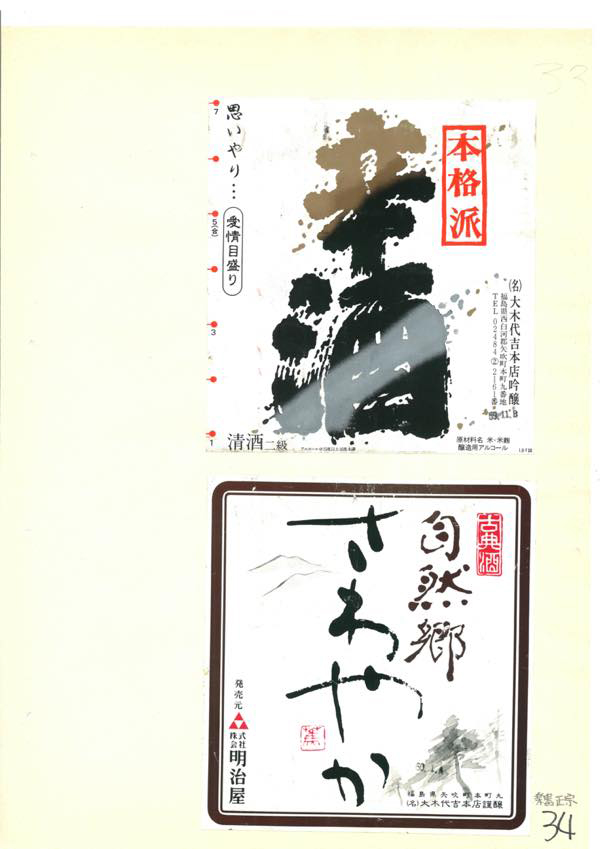 本格派
(名)大木代吉本店吟醸
福島県西白河郡矢吹町本町九番地
TEL 02484②2161番
59.11.8
原材料名 米・米麹
醸造用アルコール
思いやり…
愛情目盛り
7
5(合)
3
1
清酒二級
古典酒
自然郷
さわやか
発売元
株式会社
明治屋
福島県矢吹町本町九
(名)大木代吉本店謹醸
34